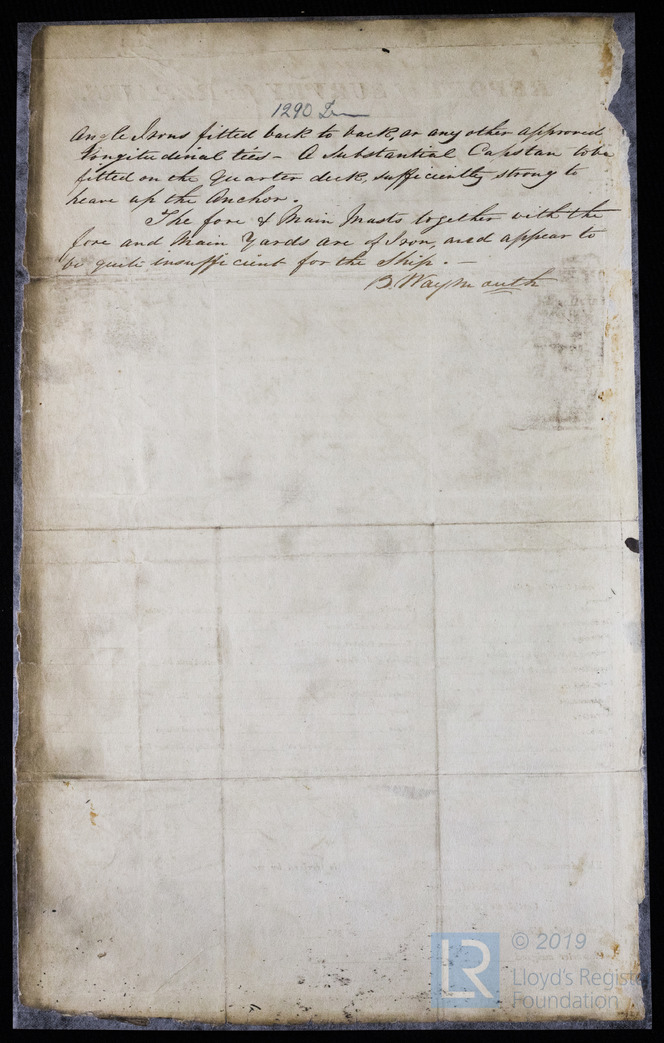 1290 Irn
Angle Irons fitted back to back, or any other approved
longitudinal ties - A substantial Capstan to be
fitted on the Quarter deck, sufficiently strong to
heave up the Anchor.
The fore & Main Masts together with the
fore and Main Yards are of Iron, and appear to
be quite insufficient for the Ship. -
B. Waymouth
LR
© 2019
Lloyd's Registe
Foundation